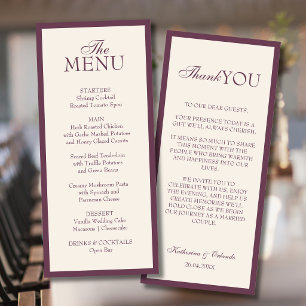 The
MENU
STARTERS
Shrimp Cocktail
Roasted Tomato Soup
MAIN
Herb Roasted Chicken
with Garlic Mashed Potatoes
and Honey Glazed Carrots
Seared Beef Tenderloin
with Truffle Potatoes
and Green Beans
Creamy Mushroom Pasta
with Spinach and
Parmesan
DESSERT
Vanilla Wedding Cake
Macarons | Cheesecake
DRINKS & COCKTAILS
Open Bar
Thank YOU
TO OUR DEAR GUESTS,
YOUR PRESENCE TODAY IS A
GIFT WE'LL ALWAYS CHERISH.
IT MEANS SO MUCH TO SHARE
THIS MOMENT WITH THE
PEOPLE WHO BRING WARMTH
AND HAPPINESS INTO OUR
LIVES.
WE INVITE YOU TO
CELEBRATE WITH US, ENJOY
THE EVENING, AND HELP US
CREATE MEMORIES WE'LL
HOLD CLOSE AS WE BEGIN
OUR JOURNEY AS A MARRIED
COUPLE.
Katherina & Orlando
26.04.20XX